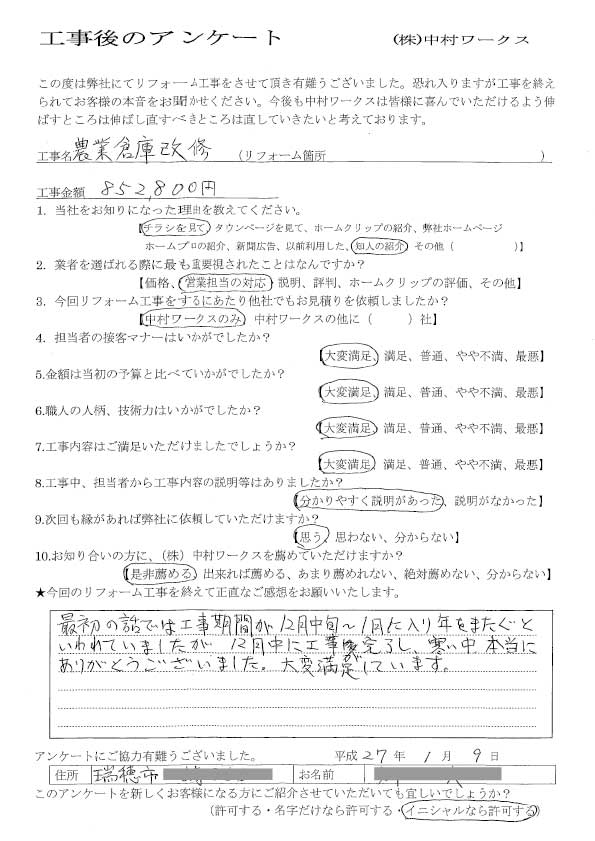 工事後のアンケート　(株)中村ワークス
この度は弊社にてリフォーム工事をさせて頂き有難うございました。恐れ入りますが工事を終え
られてお客様の本音をお聞かせください。今後も中村ワークスは皆様に喜んでいただけるよう伸
ばすところは伸ばし直すべきところは直していきたいと考えております。
工事名 農業倉庫改修　(リフォーム箇所　)
工事金額 852,800円
1. 当社をお知りになった理由を教えてください。
【チラシを見て、タウンページを見て、ホームクリップの紹介、弊社ホームページ
ホームプロの紹介、新聞広告、以前利用した、知人の紹介、その他（　）】
2. 業者を選ばれる際に最も重要視されたことはなんですか？
【価格、営業担当の対応、説明、評判、ホームクリップの評価、その他】
3. 今回リフォーム工事をするにあたり他社でもお見積りを依頼しましたか？
【中村ワークスのみ、中村ワークスの他に（　）社】
4. 担当者の接客マナーはいかがでしたか？
【大変満足、満足、普通、やや不満、最悪】
5.金額は当初の予算と比べていかがでしたか？
【大変満足、満足、普通、やや不満、最悪】
6.職人の人柄、技術力はいかがでしたか？
【大変満足、満足、普通、やや不満、最悪】
7.工事内容はご満足いただけましたでしょうか？
【大変満足、満足、普通、やや不満、最悪】
8.工事中、担当者から工事内容の説明等はありましたか？
【分かりやすく説明があった、説明がなかった】
9.次回も縁があれば弊社に依頼していただけますか？
【思う、思わない、分からない】
10.お知り合いの方に、（株）中村ワークスを薦めていただけますか？
【是非薦める、出来れば薦める、あまり薦めれない、絶対薦めない、分からない】
★今回のリフォーム工事を終えて正直なご感想をお願いいたします。
最初の話では工事期間が12月中旬～1月に入り年をまたぐと
いわれていましたが 12月中に工事が完了し、寒い中 本当に
ありがとうございました。大変満足しています。
アンケートにご協力有難うございました。　平成 27 年 1 月 9 日
住所 瑞穂市　お名前
このアンケートを新しくお客様になる方にご紹介させていただいても宜しいでしょうか？
（許可する・名字だけなら許可する・イニシャルなら許可する）